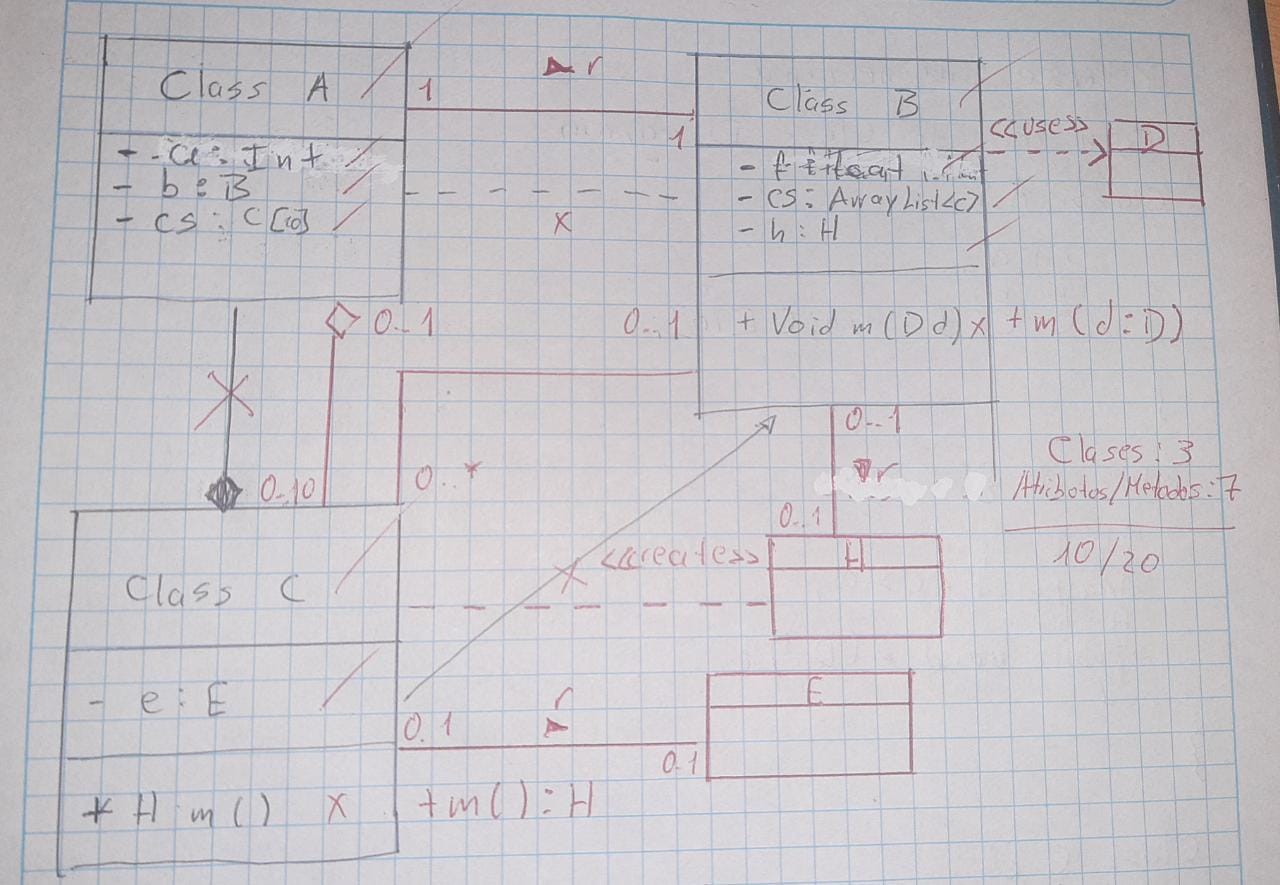 Class A
- a: Int
- b: B
- cs: C[10]
1
r
1
x
Class B
- cs: ArrayList<c>
- h: H
+ Void m(D d) x
+ m (d: D)
<<uses>>
D
0..1
0..1
0..10
0..*
0..1
r
0..1
Clases: 3
Atributos/Metodos: 7
10/20
Class C
- e: E
+ H m() x
+ m(): H
<<create>>
H
0.1
r
0.1
E